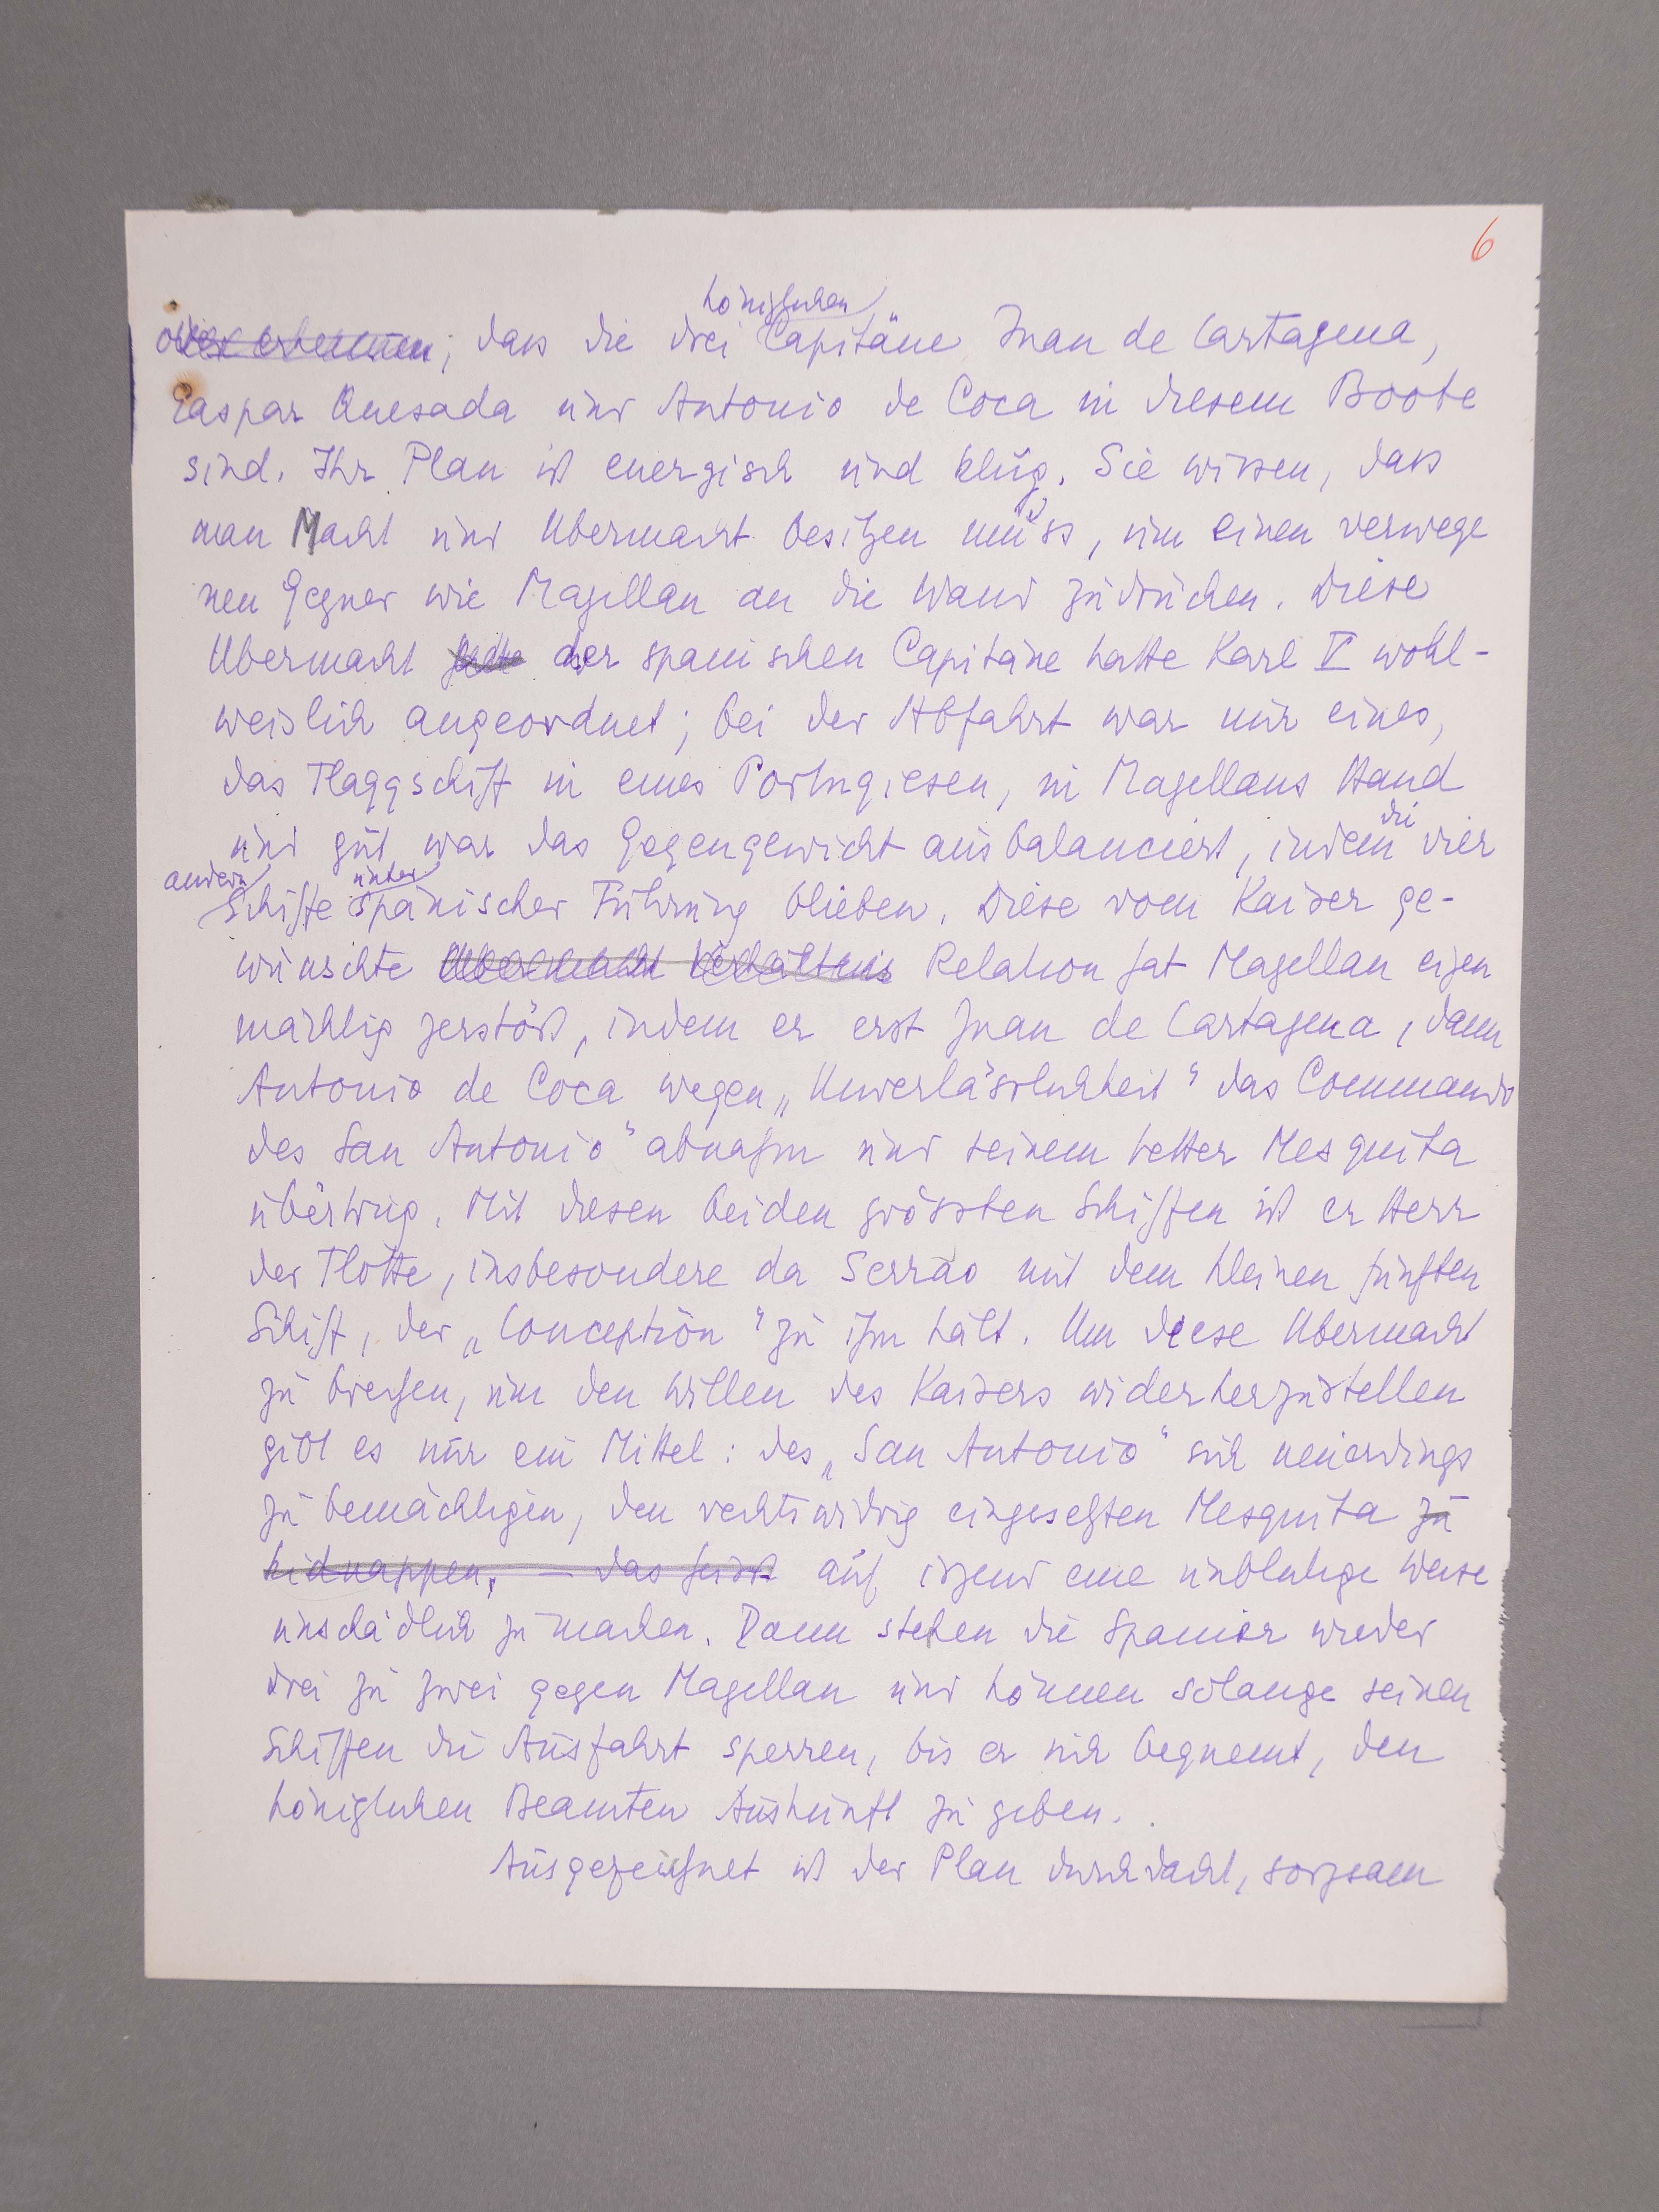 6
königlichen
oder erkennen; dass die drei Capitäne Juan de Cartagena,
Caspar Quesada und Antonio de Coca in diesem Boote
sind. Ihr Plan ist energisch und klug. Sie wissen, dass
man Macht und Übermacht besitzen muss, um einen verwege
nen Gegner wie Magellan an die Wand zudrücken. Diese
Übermacht hatte der spanischen Capitäne hatte Karl V wohl-
weislich angeordnet; bei der Abfahrt war nur eines,
das Flaggschiff in eines Portugiesen, in Magellans Hand
und gut war das Gegengewicht ausbalanciert, indem die vier
andern Schiffe unter spanischer Führung blieben. Diese vom Kaiser ge-
wünschte Übermacht Verhältnis Relation hat Magellan eigen
mächtig zerstört, indem er erst Juan de Cartagena, dann
Antonio de Coca wegen „Unverlässlichkeit" das Commando
des San Antonio" abnahm und seinem Vetter Mesquita
übertrug. Mit diesen beiden grössten Schiffen ist er Herr
der Flotte, insbesondere da Serrão mit dem kleinen fünften
Schiff, der „Conception" zu ihm hält. Um diese Übermacht
zu brechen, um den Willen des Kaisers widerherzustellen
gibt es nur ein Mittel: des „San Antonio" sich neuerdings
zu bemächtigen, den rechtswidrig eingesetzten Mesquita zu
kidnappen, – das heisst auf irgend eine unblutige Weise
unschädlich zu machen. Dann stehen die Spanier wieder
drei zu zwei gegen Magellan und können solange seinen
Schiffen die Ausfahrt sperren, bis er sich bequemt, den
königlichen Beamten Auskunft zu geben.
Ausgezeichnet ist der Plan durchdacht, sorgsam